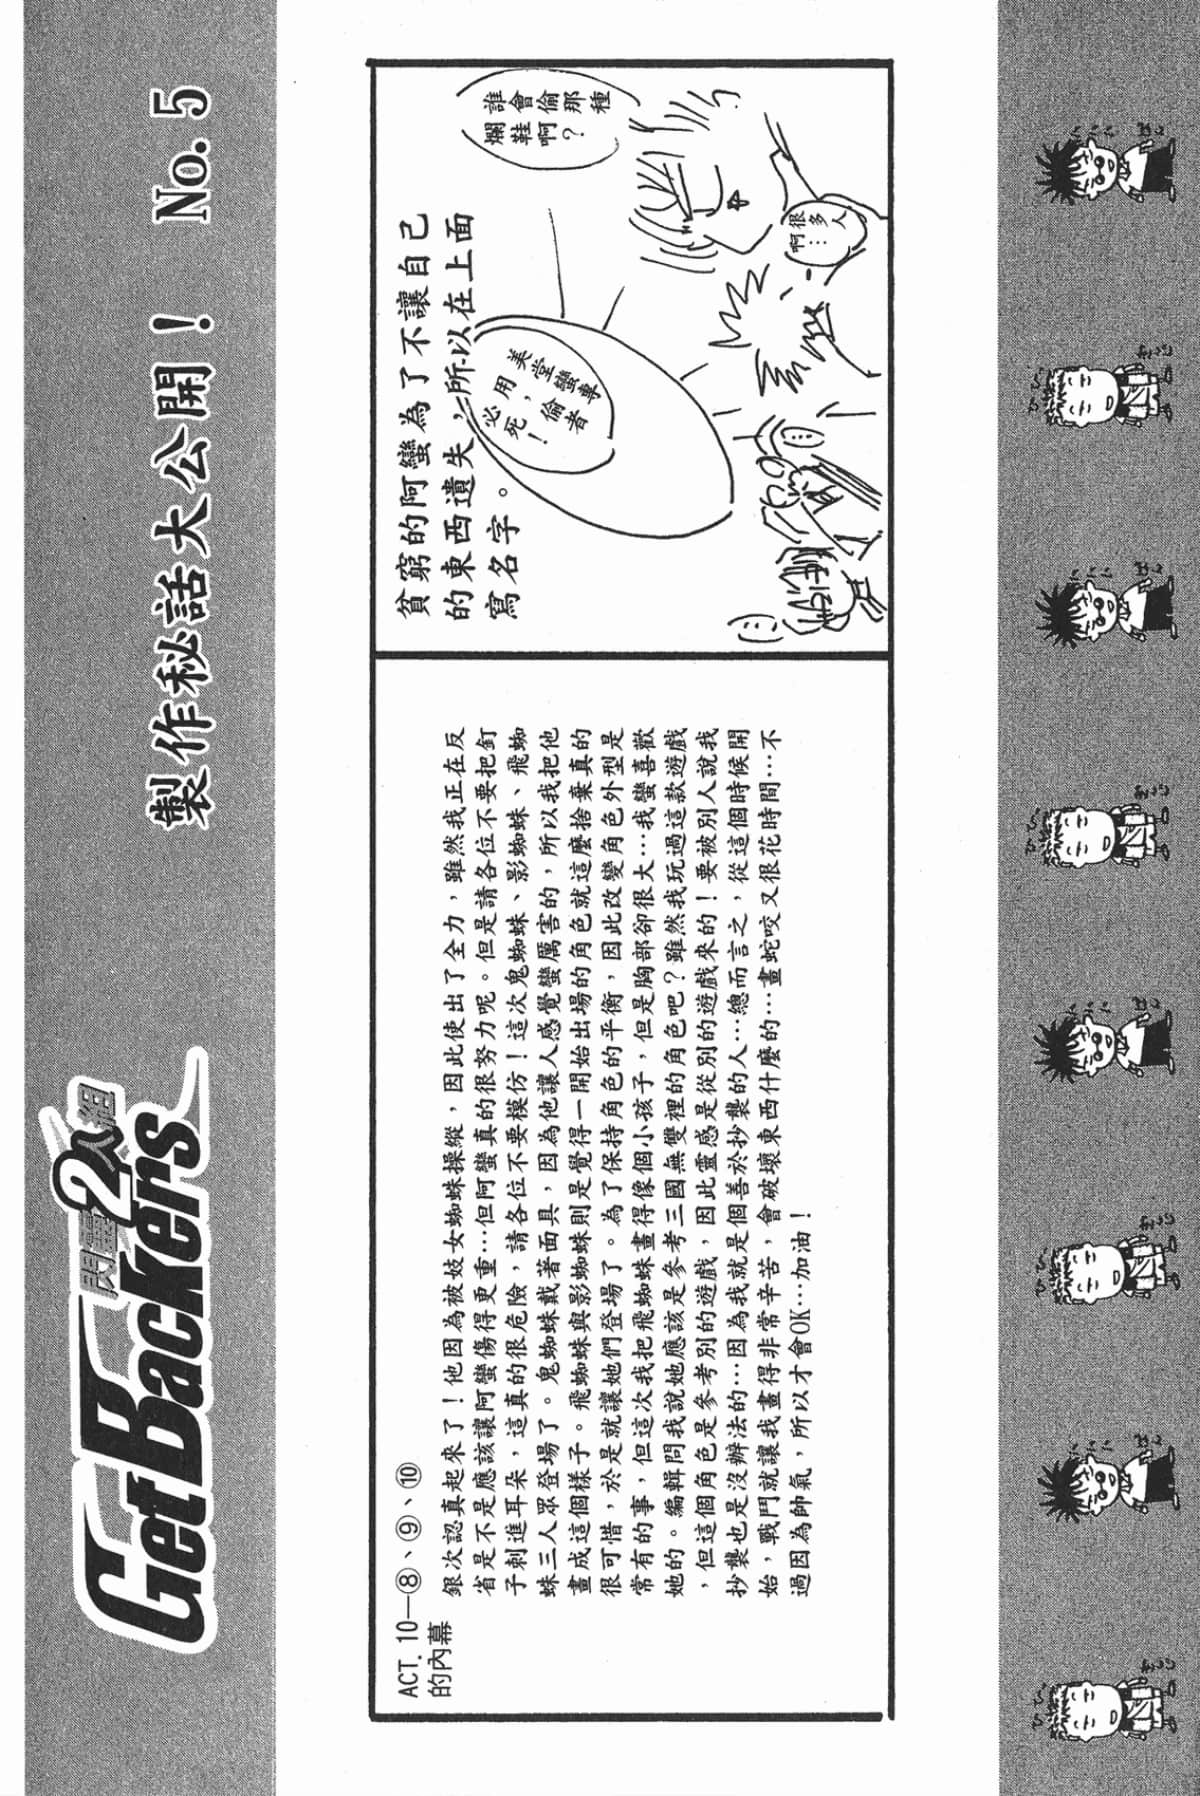 閃靈2人組
GetBackers
製作秘話大公開！ No. 5
ACT. 10—⑧、⑨、⑩
的內幕
銀次認真起來了！他因為被妓女蜘蛛操縱，因此使出了全力，雖然我正在反
省是不是應該讓阿蠻傷得更重…但阿蠻真的很努力呢。但是請各位不要把釘
子刺進耳朵，這真的很危險，請各位不要模仿！這次鬼蜘蛛、影蜘蛛、飛蜘
蛛三人眾登場了。鬼蜘蛛戴著面具，因為他讓人感覺蠻厲害的，所以我把他
畫成這個樣子。飛蜘蛛與影蜘蛛則是覺得一開始出場的角色就這麼捨棄真的
很可惜，於是就讓她們登場了。為了保持角色的平衡，因此改變角色外型是
常有的事，但這次我把飛蜘蛛畫得像個小孩子，但是胸部卻很大…我蠻喜歡
她的。編輯問我說她應該是參考三國無雙裡的角色吧？雖然我玩過這款遊戲
，但這個角色是參考別的遊戲，因此靈感是從別的遊戲來的！要被別人說我
抄襲也是沒辦法的…因為我就是個善於抄襲的人…總而言之，從這個時候開
始，戰鬥就讓我畫得非常辛苦，會破壞東西什麼的…畫蛇咬又很花時間…不
過因為帥氣，所以才會OK…加油！
貧窮的阿蠻為了不讓自己
的東西遺失，所以在上面
寫名字。
美堂蠻專
用，偷者
必死！
誰會偷那種
爛鞋啊？
很多人
啊…